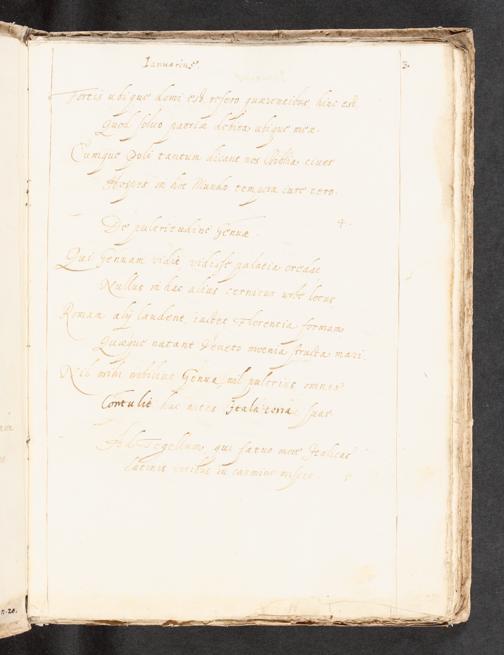 Ianuarius. 3.
Fortis ubique domi est, refero quærentibus, hinc est
Quod soluo patriæ debita ubique meæ.
Cumque Poli tantum dicant nos Biblia ciues
Hospes in hoc Mundo tempora iure tero.
4.
De pulcritudine Genuæ.
Qui Genuam vidit vidisse palatia credat
Nullus in hac alius cernitur urbe locus
Romam alij laudent, iactet Florentia formam
Quæque natant Veneto moenia structa mari.
Nil mihi nobilius Genua, nil pulcrius omnes
Contulit has dotes Itala terra suas
Ad Tegellium, qui fatuo more Italicas
latinis vocibus in carmine miscet. 5
n.20.